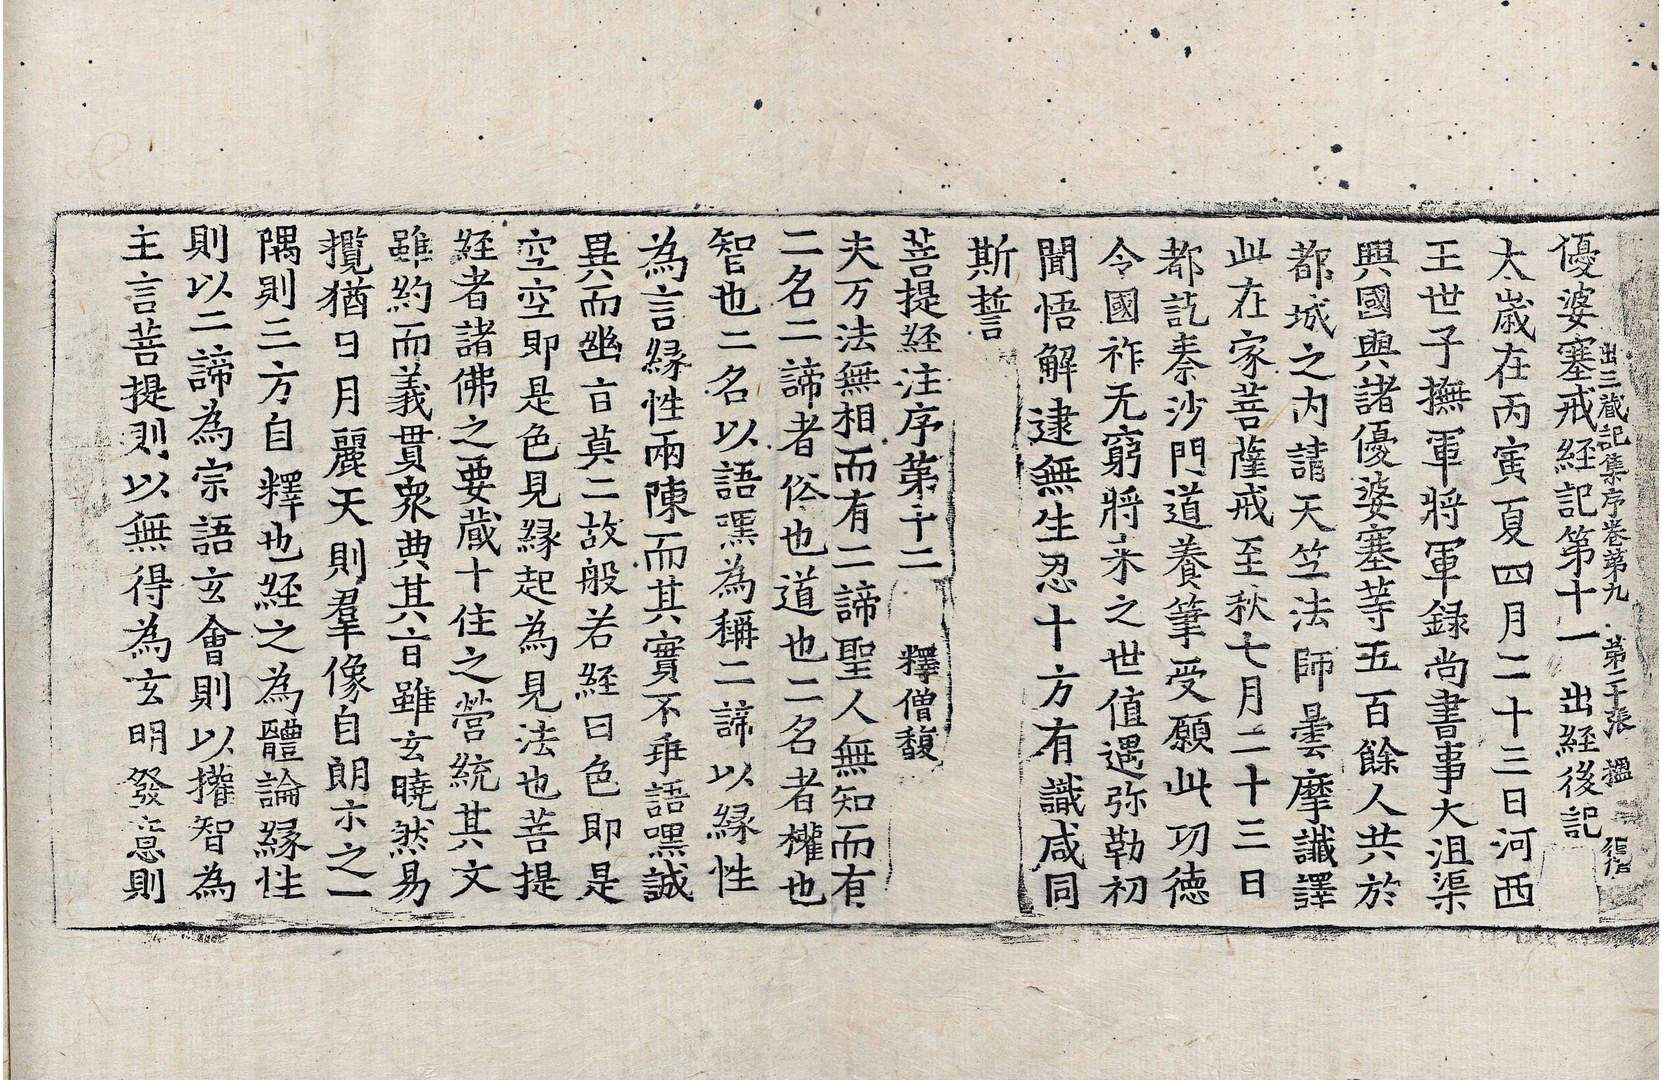 出三蔵記集序卷第九 第二十張 搵
優婆塞戒経記第十一 出経後記
太歳在丙寅夏四月二十三日河西
王世子撫軍將軍録尚書事大沮渠
興國與諸優婆塞等五百餘人共於
都城之内請天竺法師曇摩讖譯
此在家菩薩戒至秋七月二十三日
都訖秦沙門道養筆受願此功徳
令國祚无窮將来之世值遇弥勒初
聞悟解逮無生忍十方有識咸同
斯誓
菩提経注序第十二 釋僧馥
夫万法無相而有二諦聖人無知而有
二名二諦者俗也道也二名者權也
智也二名以語嘿為稱二諦以縁性
為言縁性兩陳而其實不乖語嘿誠
異而幽㫖莫二故般若経曰色即是
空空即是色見縁起為見法也菩提
経者諸佛之要蔵十住之營統其文
雖約而義貫衆典其㫖雖玄曉然易
攬猶日月麗天則羣像自朗示之一
隅則三方自釋也経之為體論縁性
則以二諦為宗語玄會則以權智為
主言菩提則以無得為玄明發意則